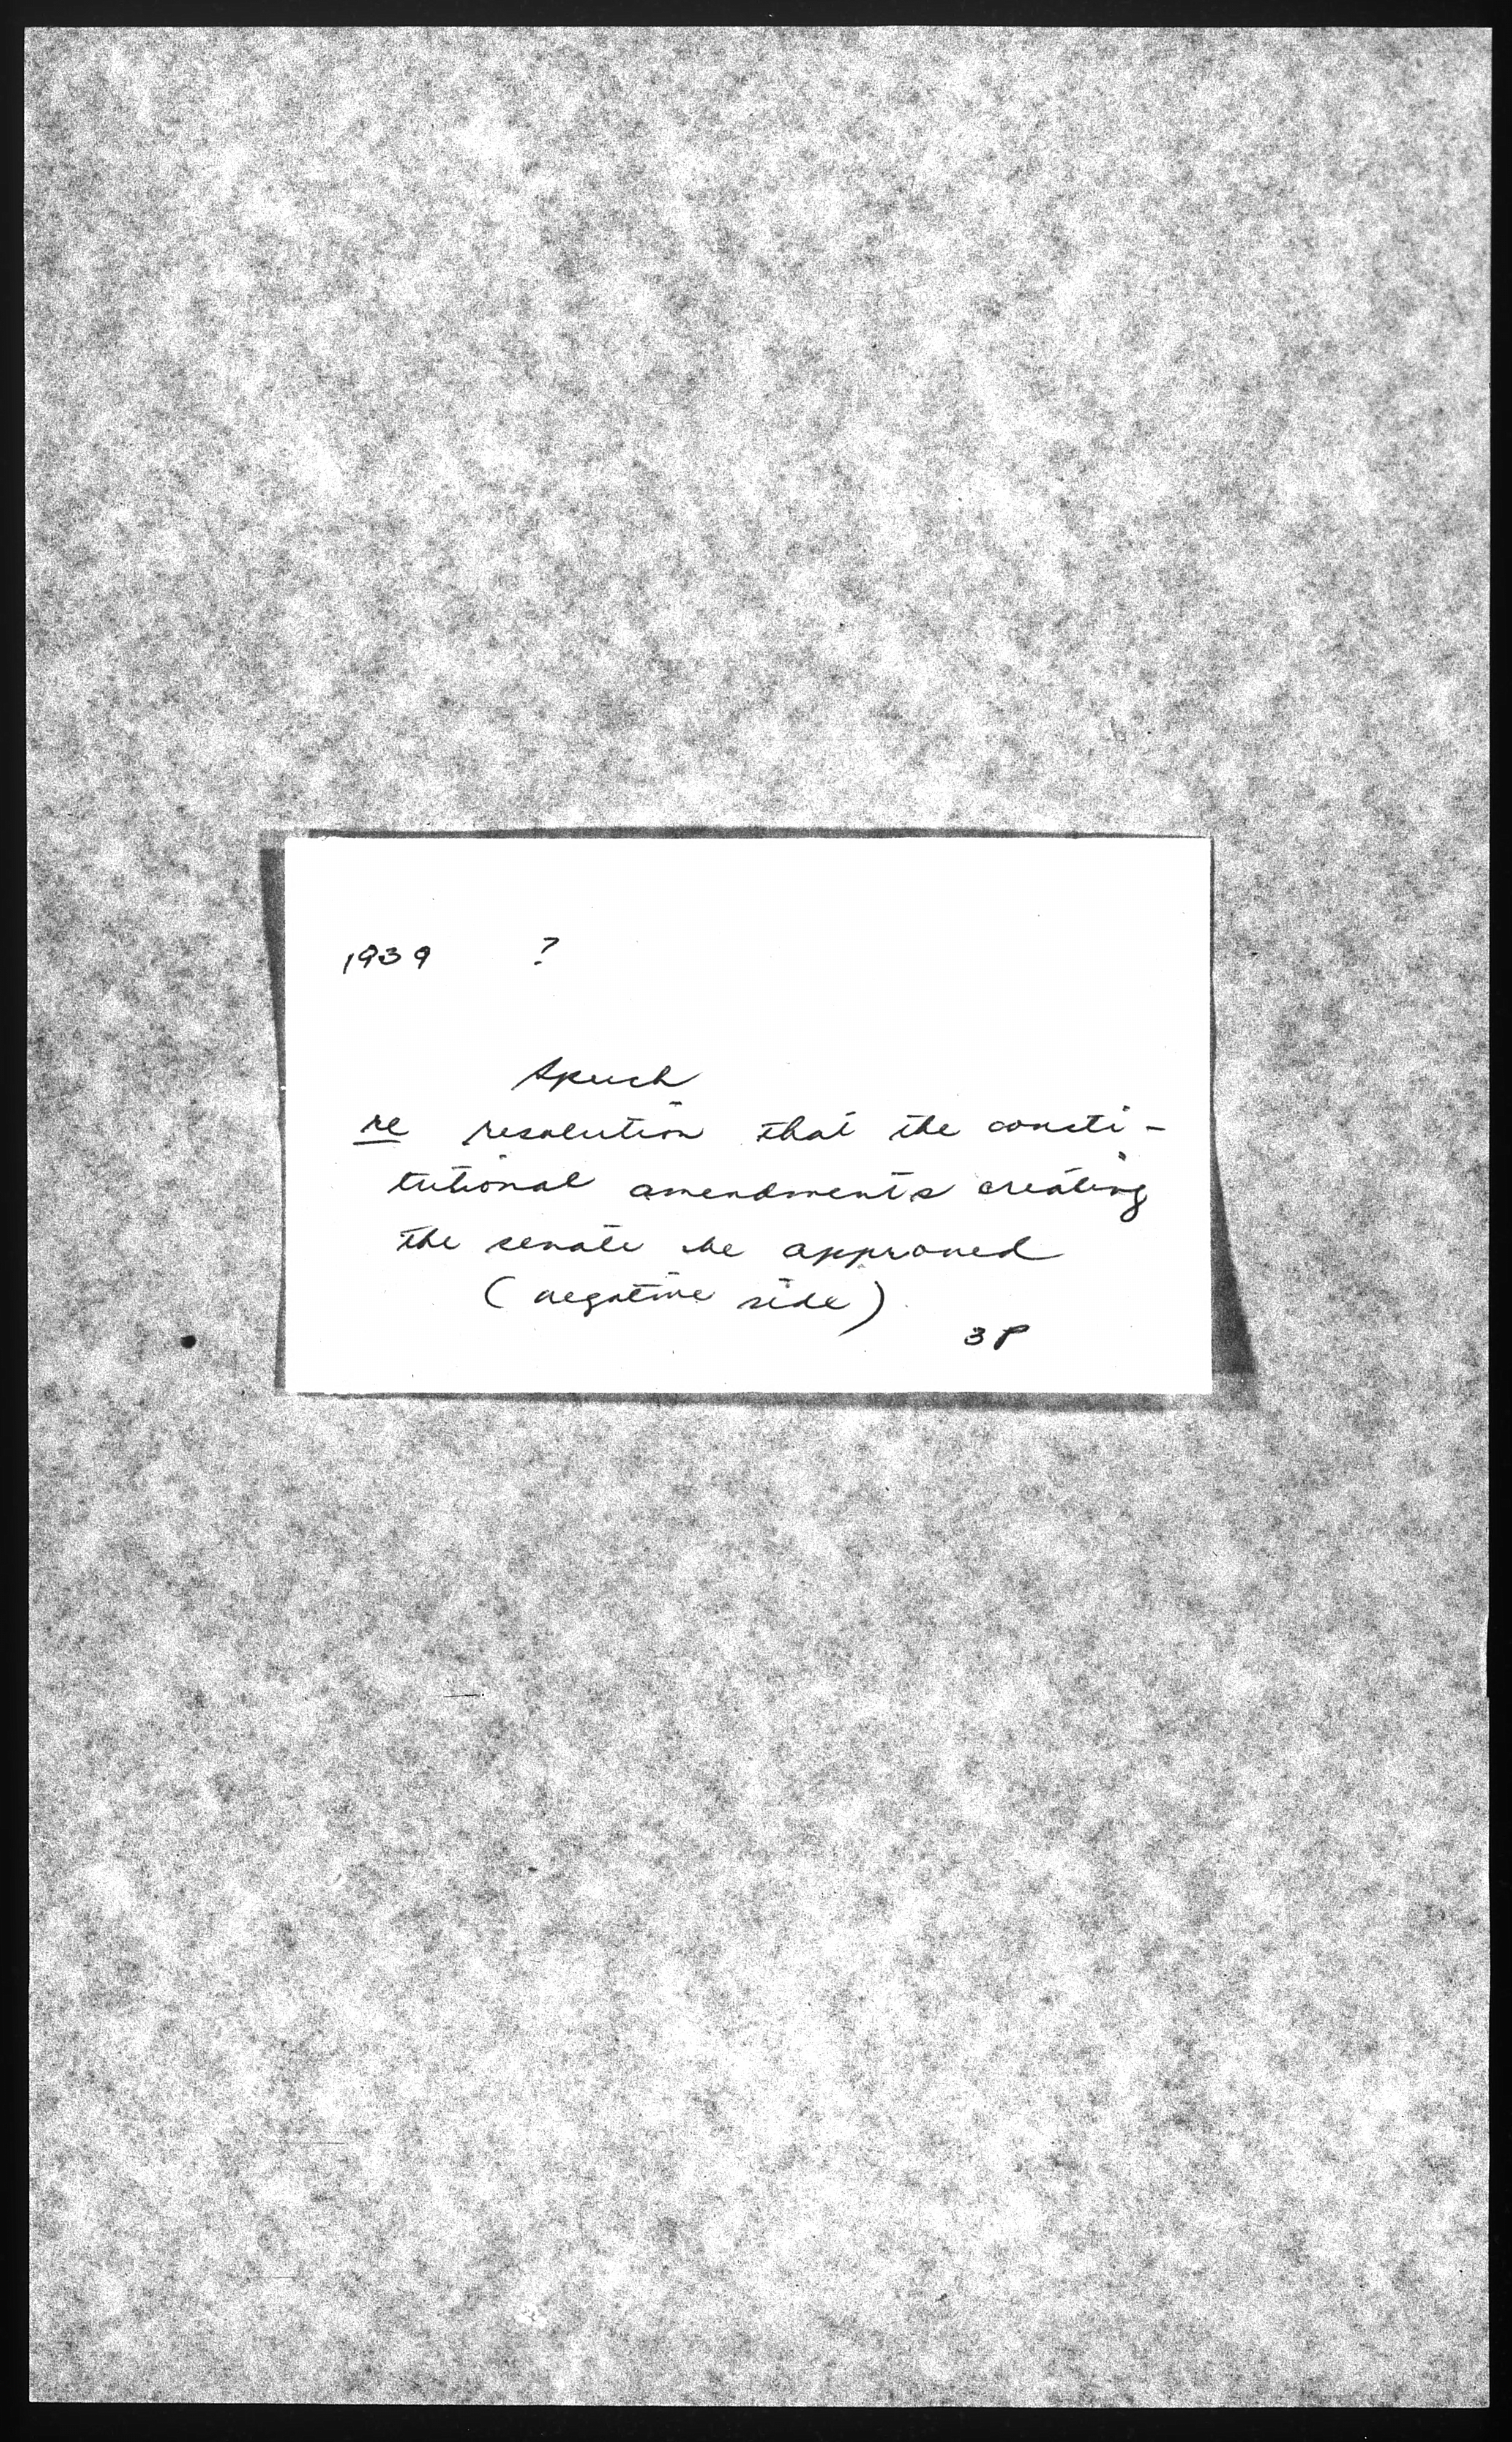 1939 ?
Speech
re resolution that the consti-
tutional amendments creating
the senate be approved
(negative side)
3P